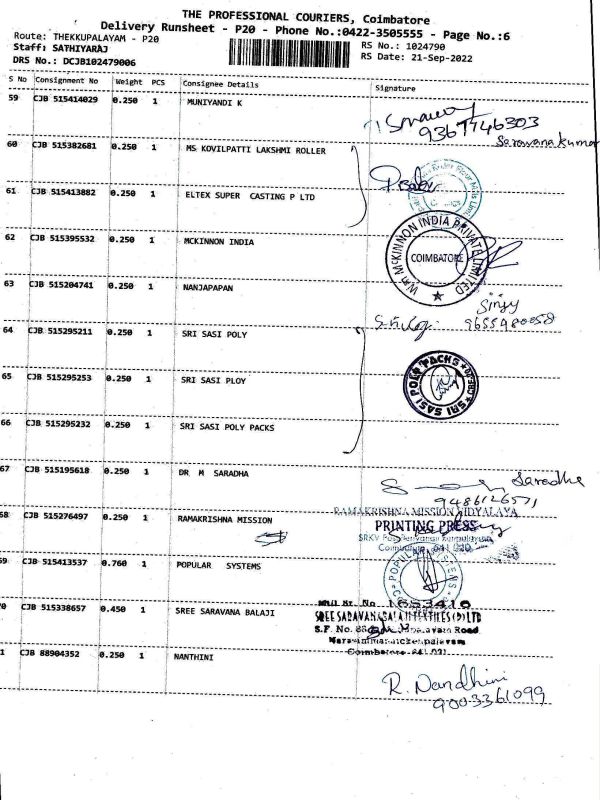 THE PROFESSIONAL COURIERS, Coimbatore
Delivery Runsheet - P20 - Phone No.:0422-3505555 - Page No.:6
Route: THEKKUPALAYAM - P20
Staff: SATHIYARAJ
DRS No.: DCJB102479006
RS No.: 1024790
RS Date: 21-Sep-2022
S No Consignment No Weight PCS Consignee Details Signature
59 CJB 515414029 0.250 1 MUNIYANDI K
9367746303
Saravanakumar
60 CJB 515382681 0.250 1 MS KOVILPATTI LAKSHMI ROLLER
61 CJB 515413882 0.250 1 ELTEX SUPER CASTING P LTD
62 CJB 515395532 0.250 1 MCKINNON INDIA
MCKINNON INDIA PRIVATE LIMITED
COIMBATORE
63 CJB 515204741 0.250 1 NANJAPAPAN
9655980058
64 CJB 515295211 0.250 1 SRI SASI POLY
65 CJB 515295253 0.250 1 SRI SASI PLOY
SRI SASI POLY PACKS
66 CJB 515295232 0.250 1 SRI SASI POLY PACKS
67 CJB 515195618 0.250 1 DR M SARADHA
Saradha
9486126571
68 CJB 515276497 0.250 1 RAMAKRISHNA MISSION
RAMAKRISHNA MISSION VIDYALAYA
PRINTING PRESS
69 CJB 515413537 0.760 1 POPULAR SYSTEMS
70 CJB 515338657 0.450 1 SREE SARAVANA BALAJI
S.F. No.
Road
71 CJB 88904352 0.250 1 NANTHINI
R. Nandhini
9003361099